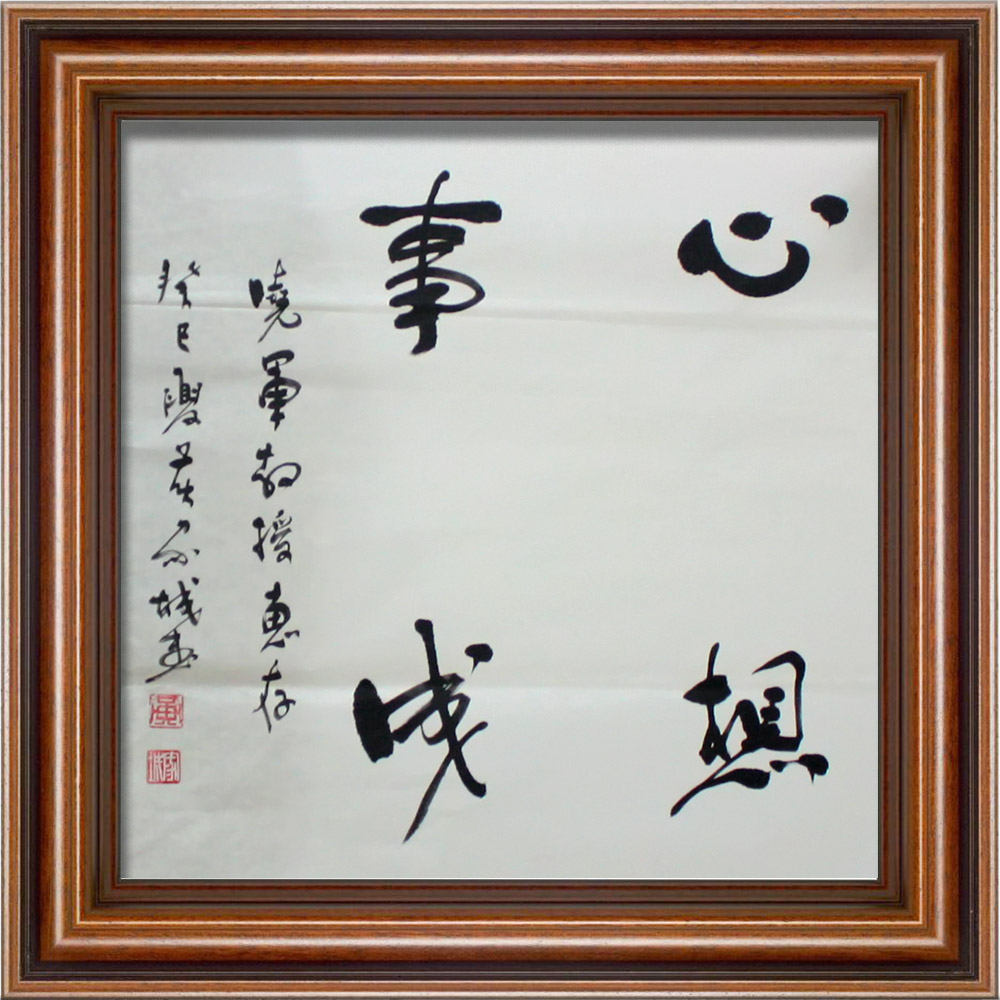 心想
事成
曉軍教授惠存
癸巳夏吴家城书